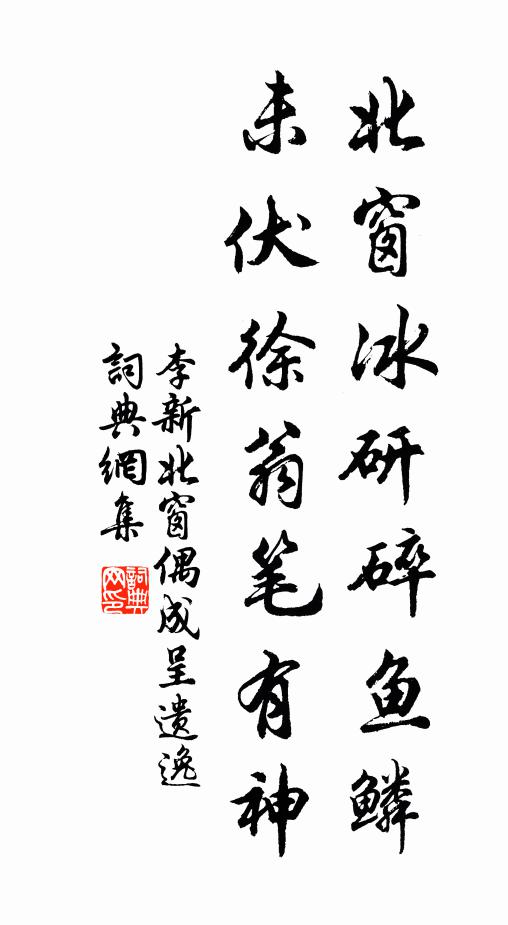 北窗冰研碎鱼鳞
未伏徐翁笔有神
李新北窗偶成呈遗逸
詞典網集
詞典网印